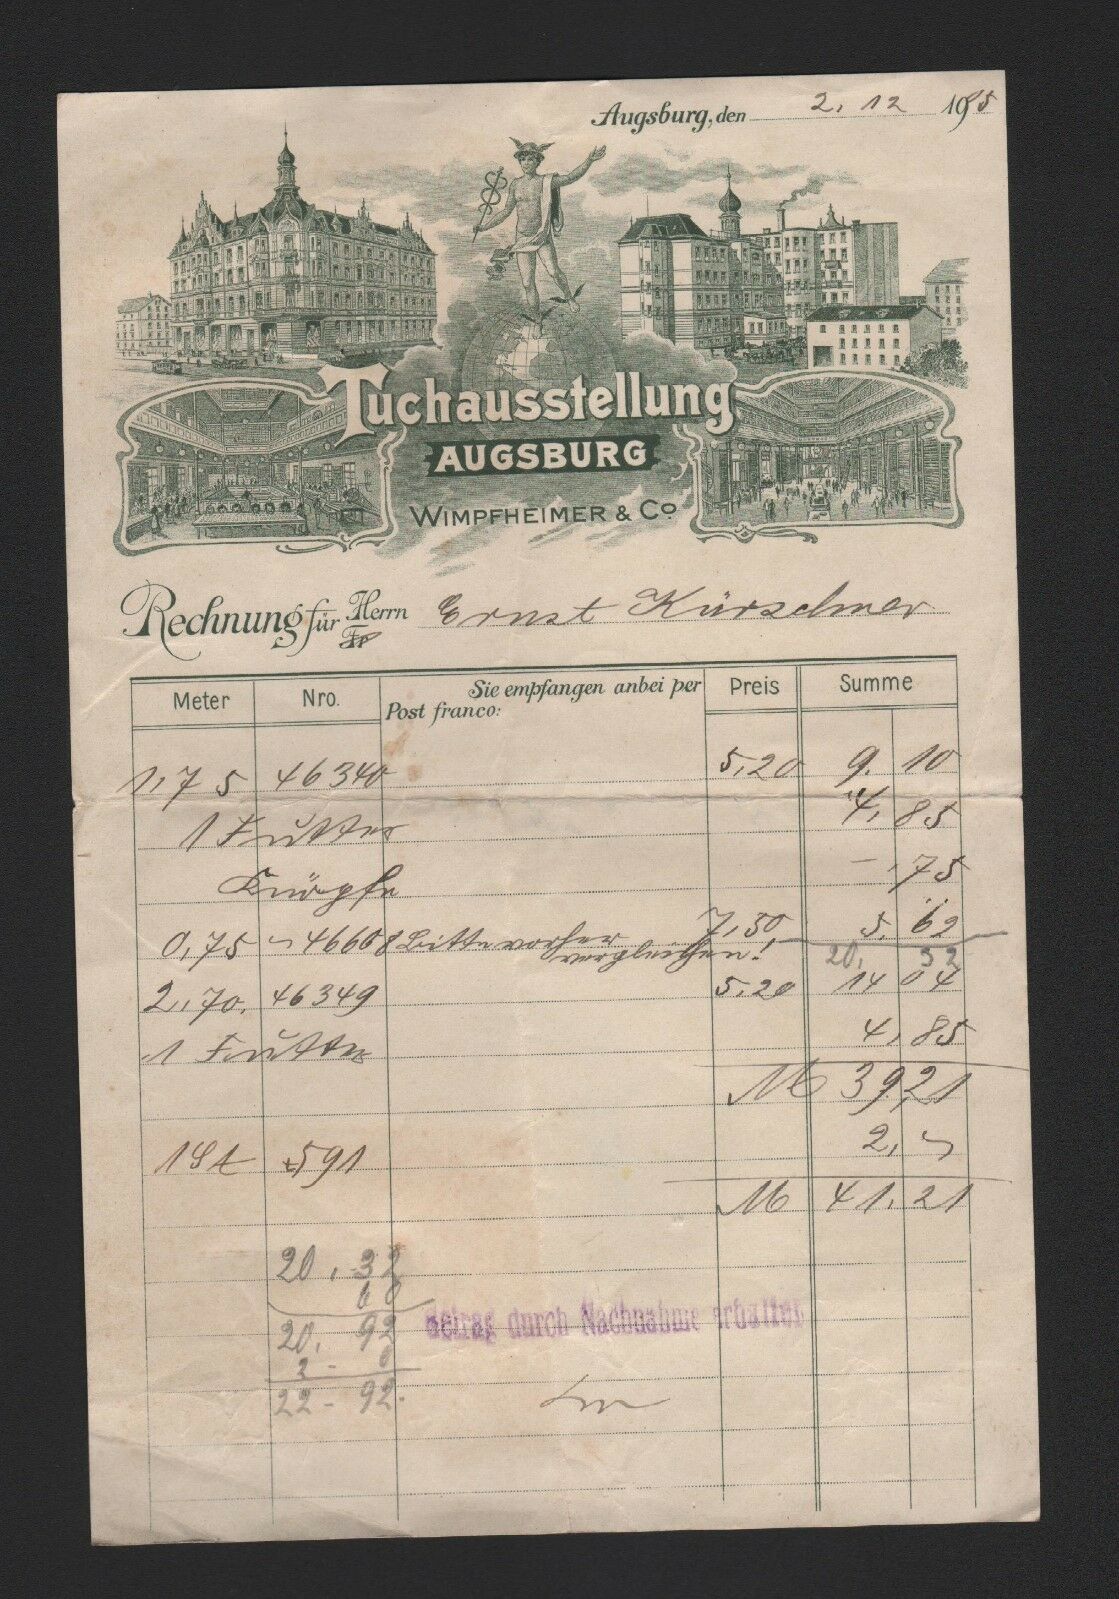 Augsburg, den 2. 12 1905
Tuchausstellung
AUGSBURG
WIMPFHEIMER & Co
Rechnung für Herrn Ernst Kürschner
Fr
Meter Nro. Sie empfangen anbei per Post franco: Preis Summe
1,75 46340 5,20 9. 10
1 Futter 4,85
Knöpfe –,75
0,75 46608 Bitte vorher vergleichen! 7,50 5. 62
20, 32
2,70. 46349 5,20 14 04
1 Futter 4,85
M 39,21
1 St 591 2, –
M 41,21
20, 32
60
20, 92
2 – 0
22 – 92.
Betrag durch Nachnahme erhalten